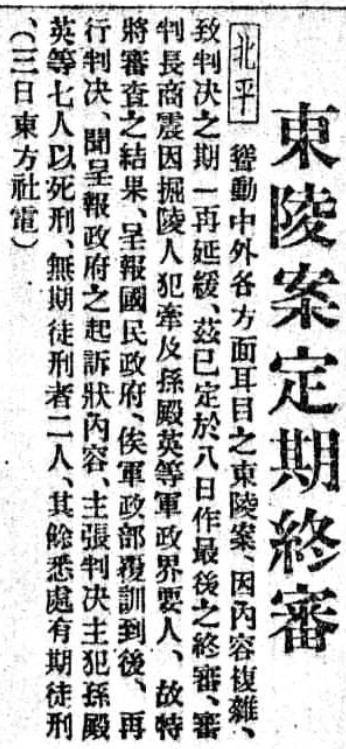 東陵案定期終審
北平 聳動中外各方面耳目之東陵案、因內容複雜、
致判决之期一再延緩、茲已定於八日作最後之終審、審
判長商震因掘陵人犯牽及孫殿英等軍政界要人、故特
將審查之結果、呈報國民政府、俟軍政部覆訓到後、再
行判决、聞呈報政府之起訴狀內容、主張判决主犯孫殿
英等七人以死刑、無期徒刑者二人、其餘悉處有期徒刑
、（三日東方社電）